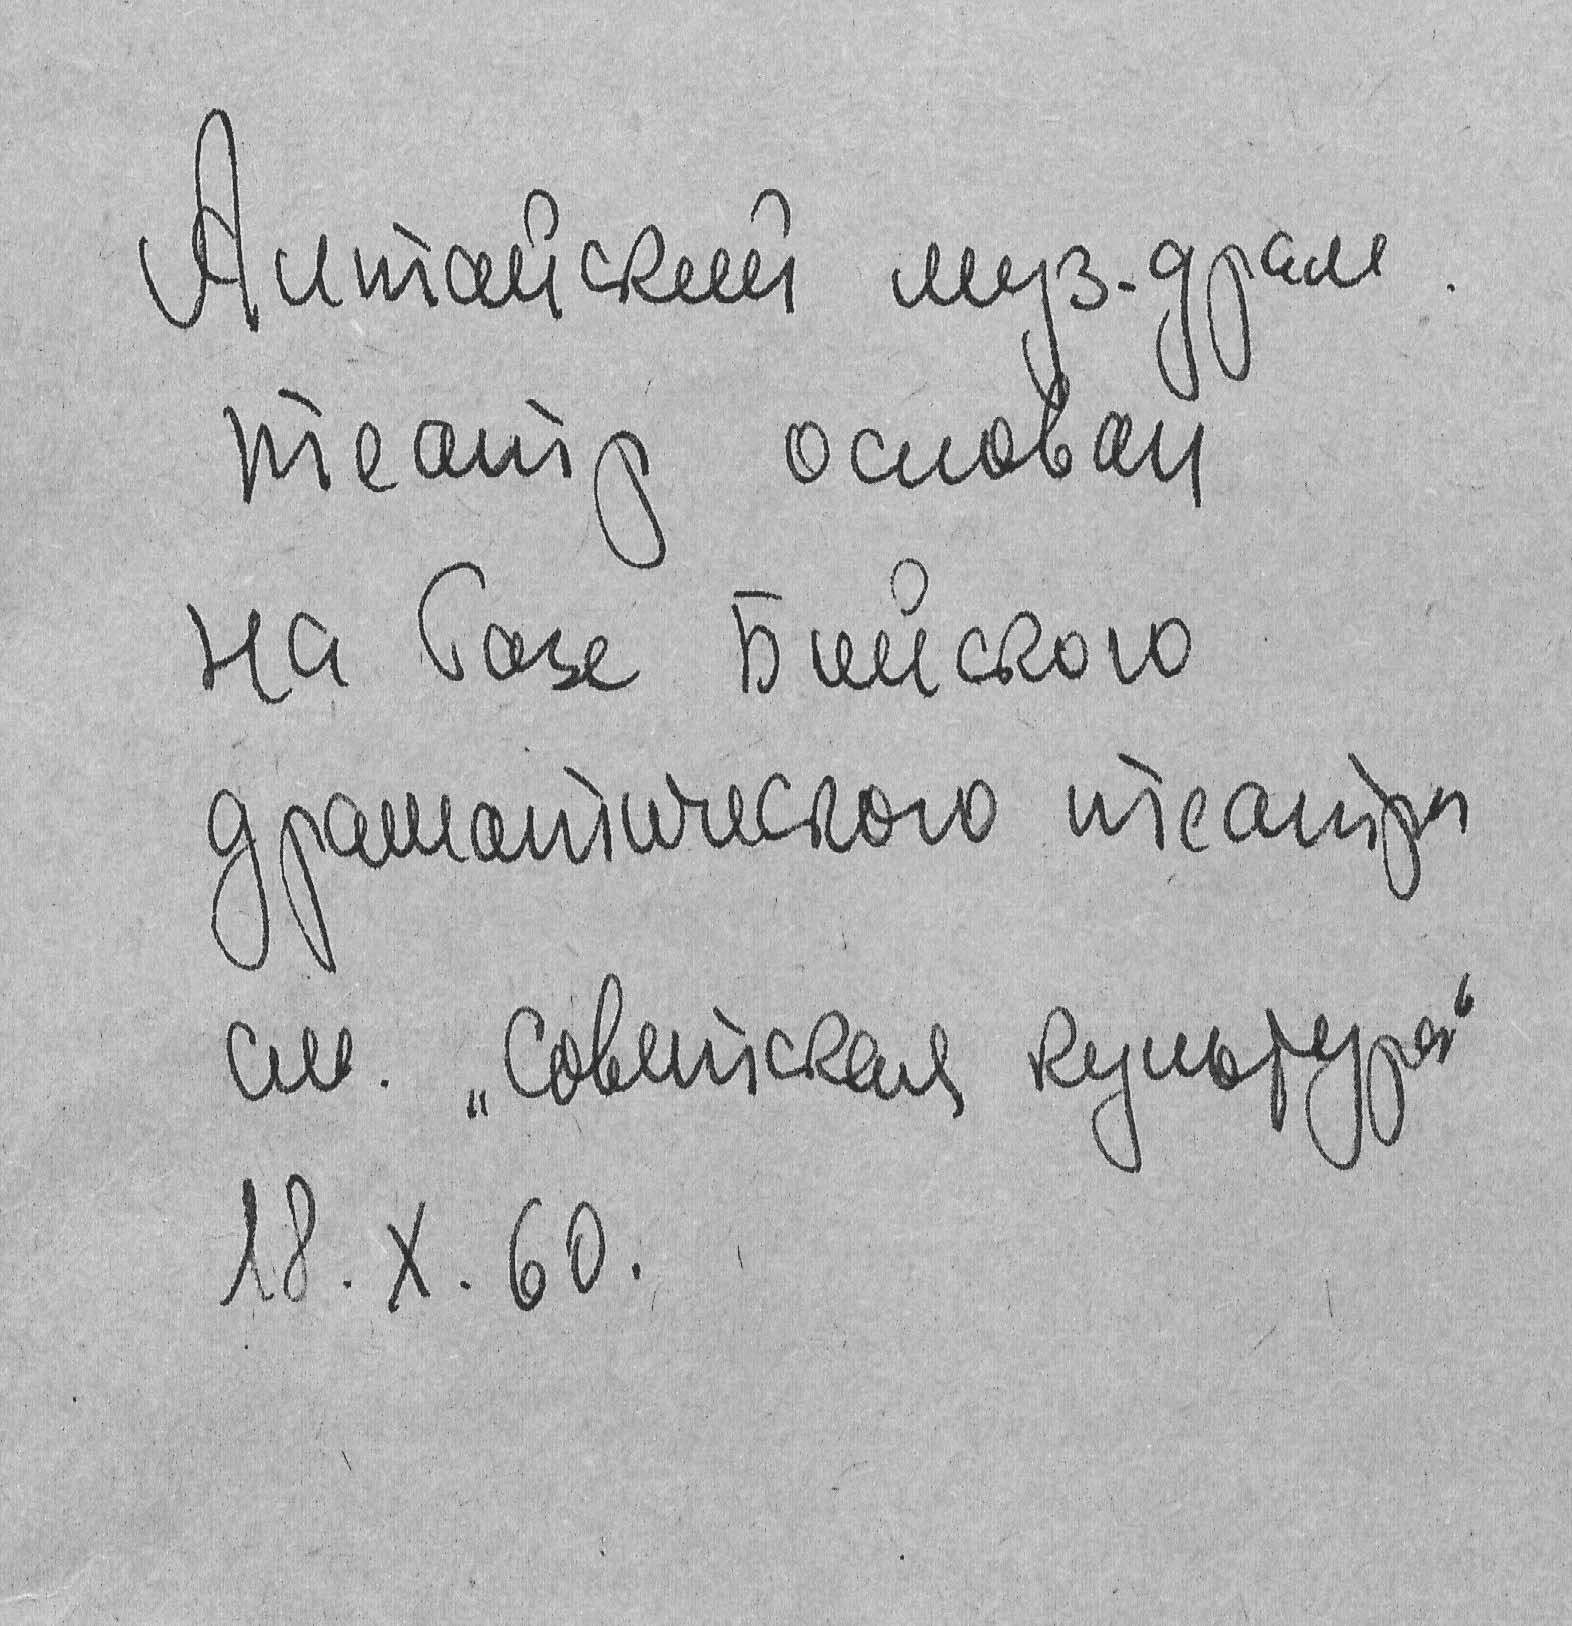 Алтайский муз.-драм.
театр основан
на базе Бийского
драматического театра
см. „Советская культура“
18.X.60.